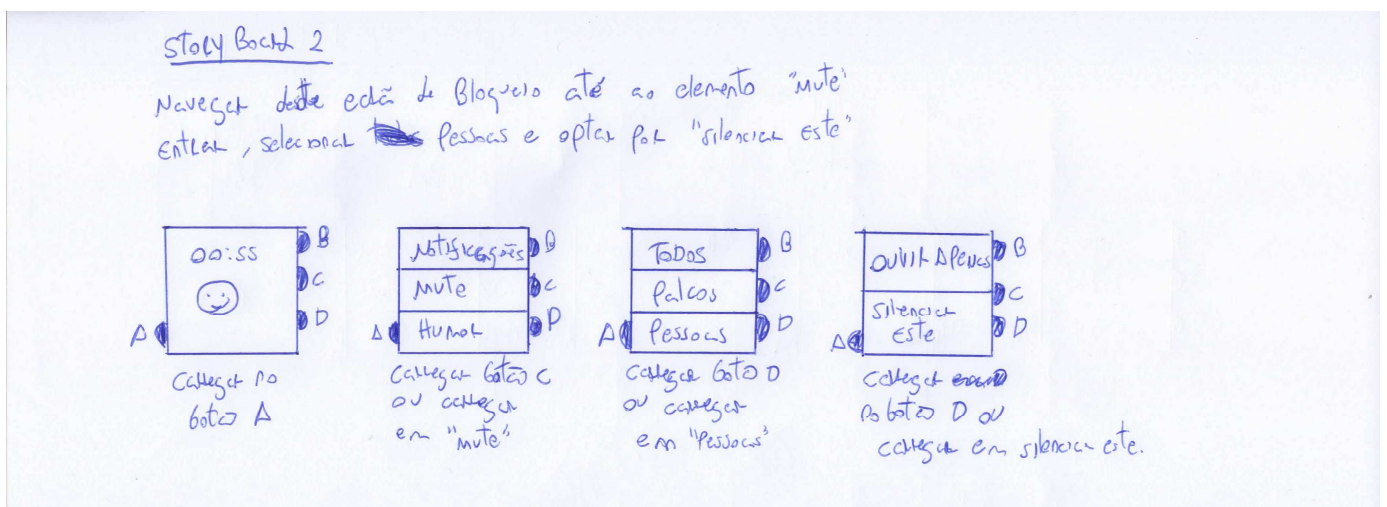 Story Board 2
Navegar deste ecrã de Bloqueio até ao elemento "Mute"
Entrar, selecionar Pessoas e optar por "silenciar este"
00:55
B
C
D
A
Carregar no
botão A
Notificações
Mute
Humor
B
C
D
A
Carregar botão C
ou carregar
em "mute"
Todos
Palcos
Pessoas
B
C
D
A
Carregar botão D
ou carregar
em "Pessoas"
Ouvir Apenas
Silenciar
Este
B
C
D
A
Carregar
no botão D ou
carregar em silenciar este.